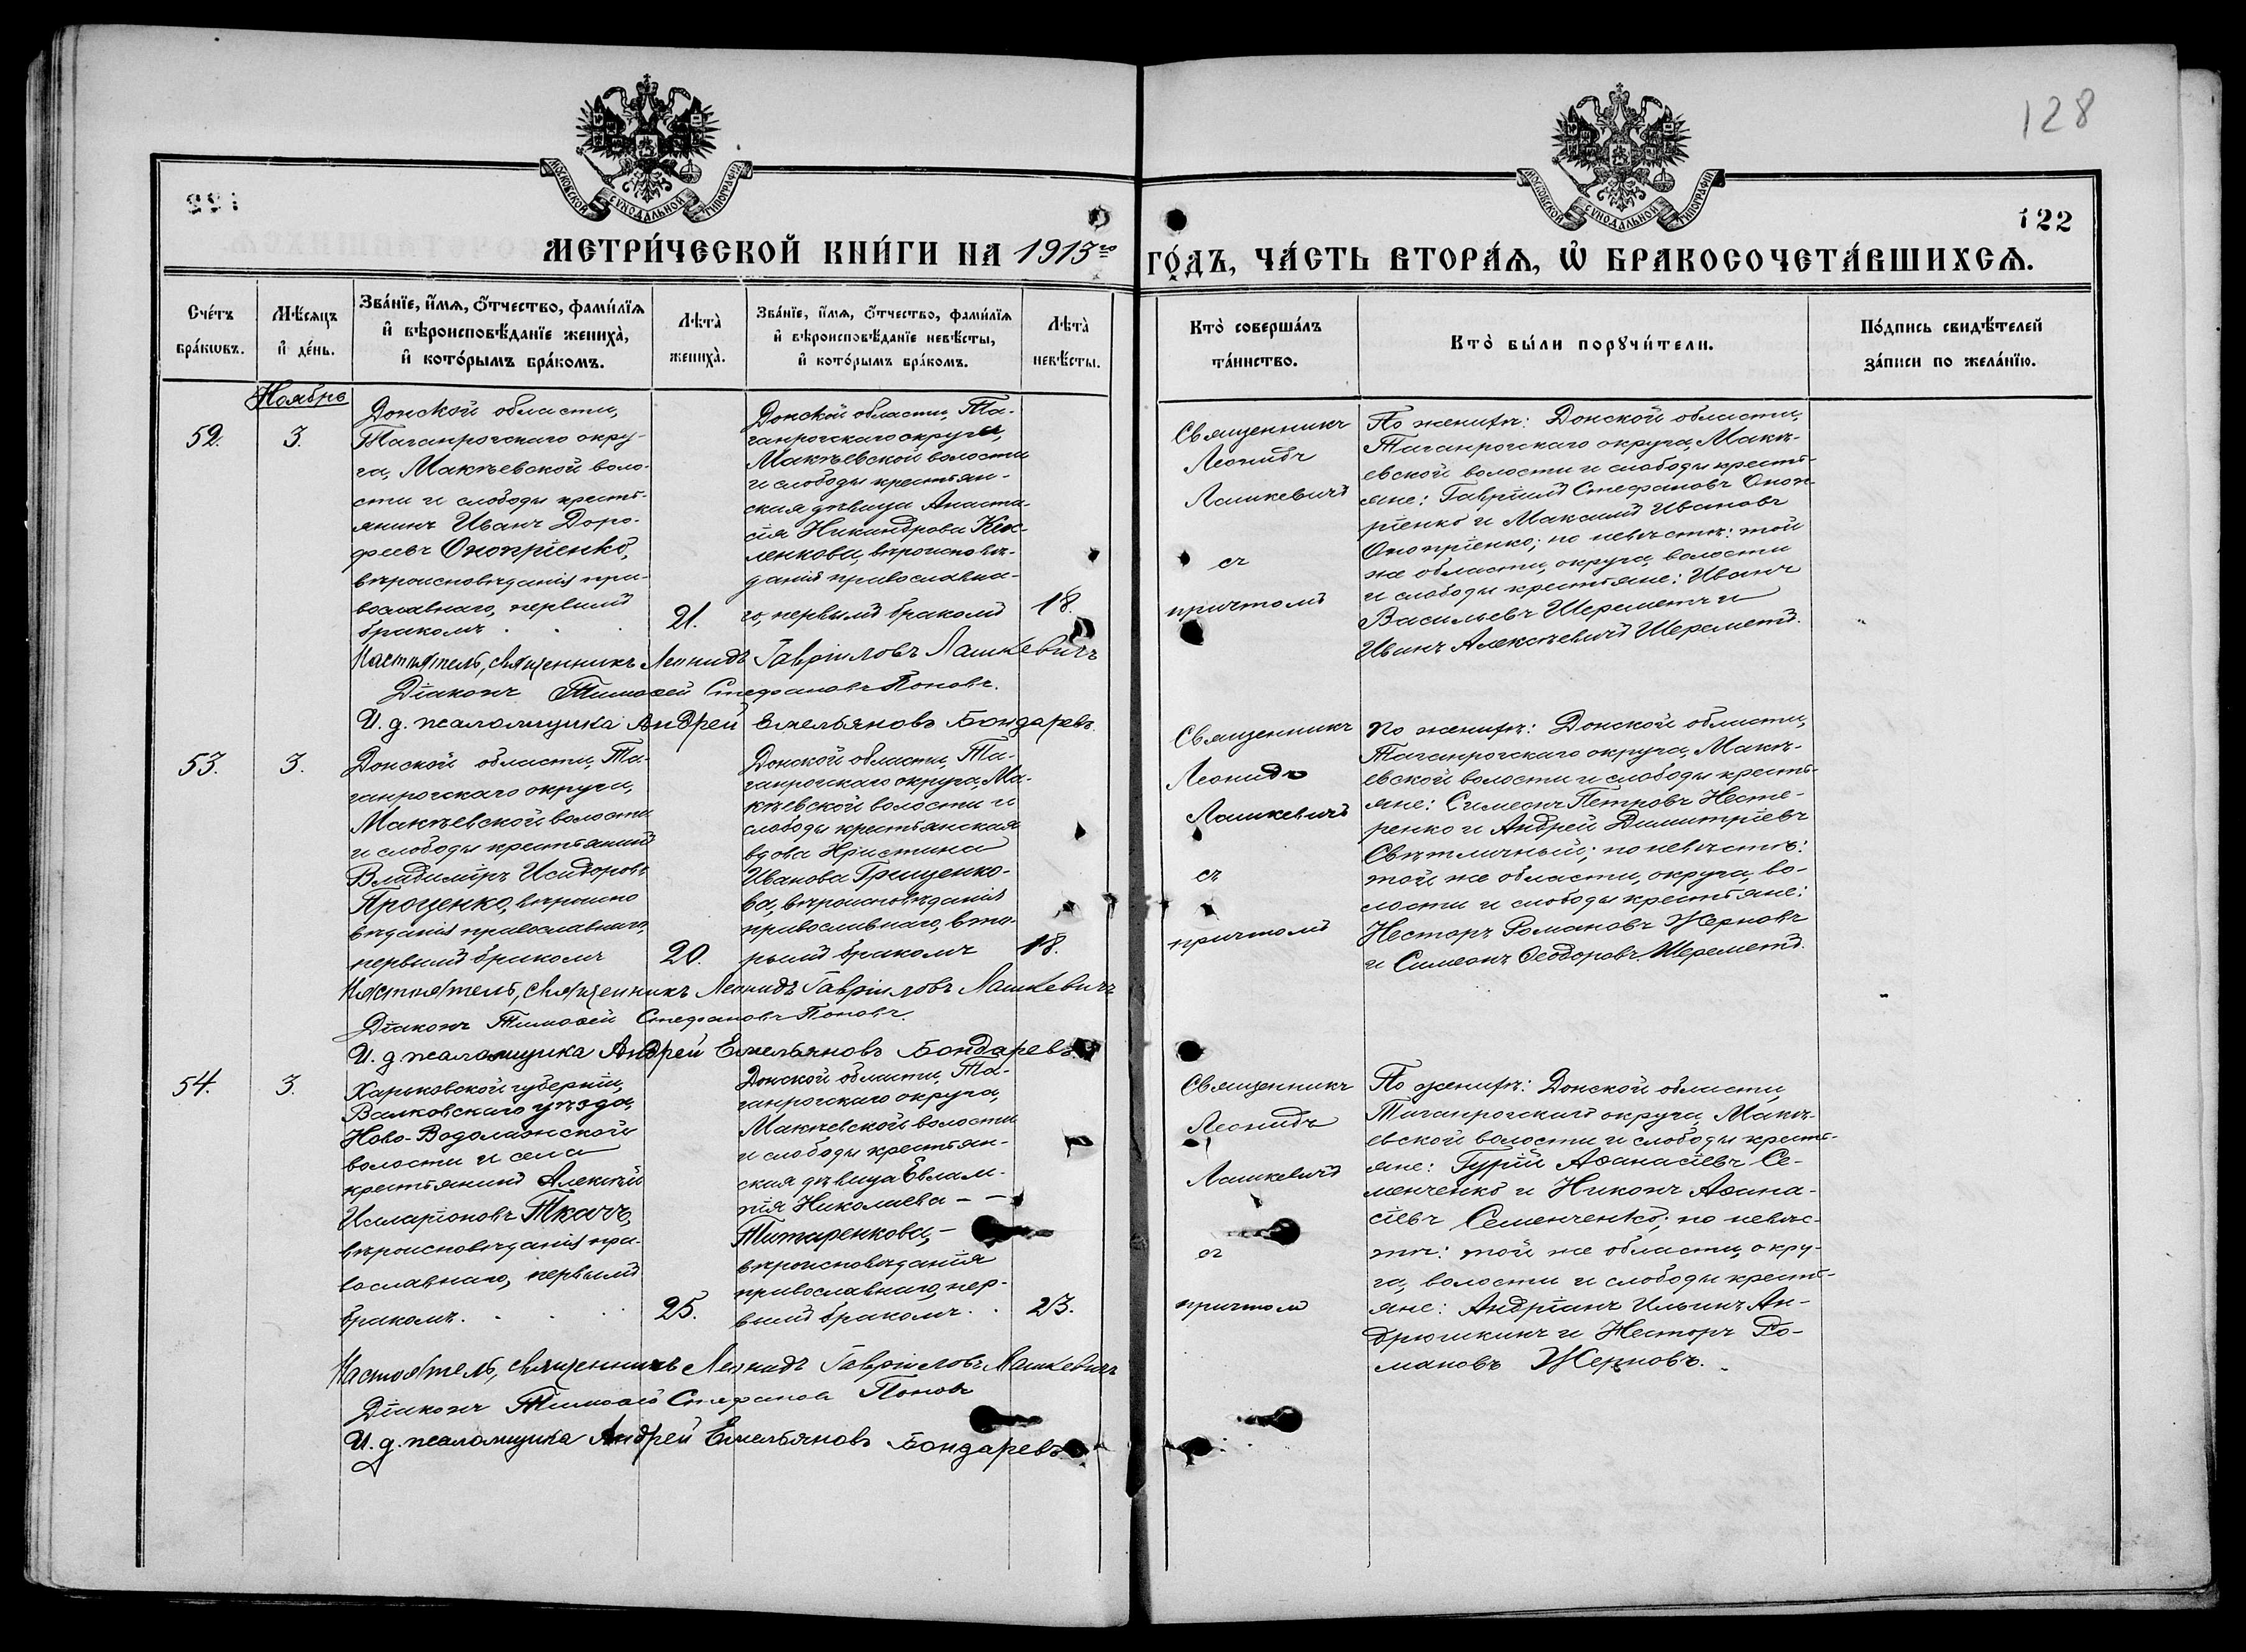 128
МОСКОВСКОЙ СѴНОДАЛЬНОЙ ТИПОГРАФІИ
МОСКОВСКОЙ СѴНОДАЛЬНОЙ ТИПОГРАФІИ
122
МЕТРИ́ЧЕСКОЙ КНИ́ГИ НА 1913го
ГО́ДЪ, ЧА́СТЬ ВТОРА́Ѧ, Ѡ҆ БРАКОСОЧЕТА́ВШИХСѦ.
Сче́тъ
бра́кѡвъ.
Мѣ́сѧцъ
и҆ де́нь.
Зва́нїе, и҆́мѧ, ѻ҆́тчество, фами́лїѧ
и҆ вѣроисповѣ́данїе жениха̀,
и҆ кото́рымъ бра́комъ.
Лѣта̀
жениха̀.
Зва́нїе, и҆́мѧ, ѻ҆́тчество, фами́лїѧ
и҆ вѣроисповѣ́данїе невѣ́сты,
и҆ кото́рымъ бра́комъ.
Лѣта̀
невѣ́сты.
Кто̀ соверша́лъ
та́инство.
Кто̀ бы́ли порꙋчи́тели.
По́дпись свидѣ́телей
за́писи по жела́нїю.
Ноябрь
52.
3.
Донской области,
Таганрогскаго окру-
га, Макѣевской воло-
сти и слободы кресть-
янинъ Иванъ Доро-
феевъ Оноприенко,
вѣроисповѣданія пра-
вославнаго, первымъ
бракомъ
21.
Донской области, Та-
ганрогскаго округа,
Макѣевской волости
и слободы крестьян-
ская дѣвица Анаста-
сія Никандрова
ленкова, вѣроисповѣ-
данія православна-
го, первымъ бракомъ
18.
Священникъ
Леонидъ
Лашкевичъ
съ
причтомъ
По женихѣ: Донской области,
Таганрогскаго округа, Макѣ-
евской волости и слободы кресть-
яне: Гавріилъ Стефановъ Оноп-
ріенко и Максимъ Ивановъ
Оноприенко; по невѣстѣ: той
же области, округа, волости
и слободы крестьяне: Иванъ
Васильевъ Шереметъ и
Иванъ Алексѣевичъ Шереметъ.
Настоятель, священникъ Леонидъ Гавріиловъ Лашкевичъ
Діаконъ Тимоѳей Стефановъ Поповъ.
И. д. псаломщика Андрей Емельяновъ Бондаревъ.
53.
3.
Донской области, Та-
ганрогскаго округа,
Макѣевской волости
и слободы крестьянинъ
Владиміръ Исидоровъ
Проценко, вѣроиспо
вѣданія православнаго,
первымъ бракомъ
20.
Донской области, Та-
ганрогскаго округа, Ма-
кѣевской волости и
слободы крестьянская
вдова Христина
Иванова Грищенко-
ва, вѣроисповѣданія
православнаго, вто-
рымъ бракомъ
18.
Священникъ
Леонидъ
Лашкевичъ
съ
причтомъ
По женихѣ: Донской области,
Таганрогскаго округа, Макѣ-
евской волости и слободы кресть-
яне: Симеонъ Петровъ Несте-
ренко и Андрей Димитріевъ
Свѣтличный; по невѣстѣ:
той же области, округа, во-
лости и слободы крестьяне:
Несторъ Романовъ Жерновъ
и Симеонъ Ѳеодоровъ Шереметъ.
Настоятель, священникъ Леонидъ Гавріиловъ Лашкевичъ
Діаконъ Тимоѳей Стефановъ Поповъ.
И. д псаломщика Андрей Емельяновъ Бондаревъ
54.
3.
Харьковской губерніи,
Валковскаго уѣзда,
Ново-Водолажской
волости и села
крестьянинъ Алексѣй
Иларіоновъ Ткачъ,
вѣроисповѣданія пра-
вославнаго, первымъ
бракомъ.
25.
Донской области, Та-
ганрогскаго округа,
Макѣевской волости
и слободы крестьян-
ская дѣвица Евлам-
пія Николаева - -
Титаренкова, -
вѣроисповѣданія
православнаго, пер-
вымъ бракомъ.
23.
Священникъ
Леонидъ
Лашкевичъ
съ
причтом
По женихѣ: Донской области,
Таганрогскаго округа, Макѣ-
евской волости и слободы кресть-
яне: Гурій Аѳанасіевъ Се-
менченко и Никонъ Аѳана-
сіевъ Семенченко; по невѣс-
тѣ: той же области, окру-
га, волости и слободы кресть-
яне: Андріанъ Ильинъ Ан-
дрюшкинъ и Несторъ Ро-
мановъ Жерновъ.
Настоятель, священникъ Леонидъ Гавріиловъ Лашкевичъ
Діаконъ Тимоѳей Стефановъ Поповъ
И. д. псаломщика Андрей Емельяновъ Бондаревъ